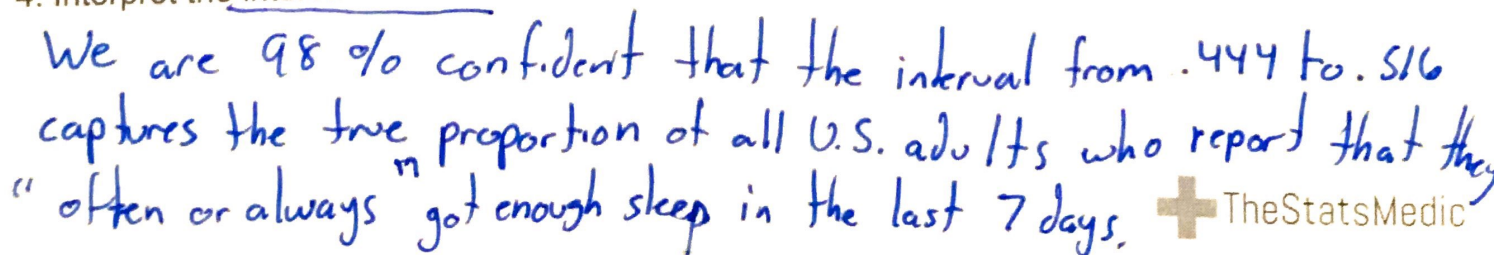 4. Interpret the
We are 98 % confident that the interval from .444 to .516
captures the true proportion of all U.S. adults who report that they
"often or always" got enough sleep in the last 7 days.
TheStatsMedic